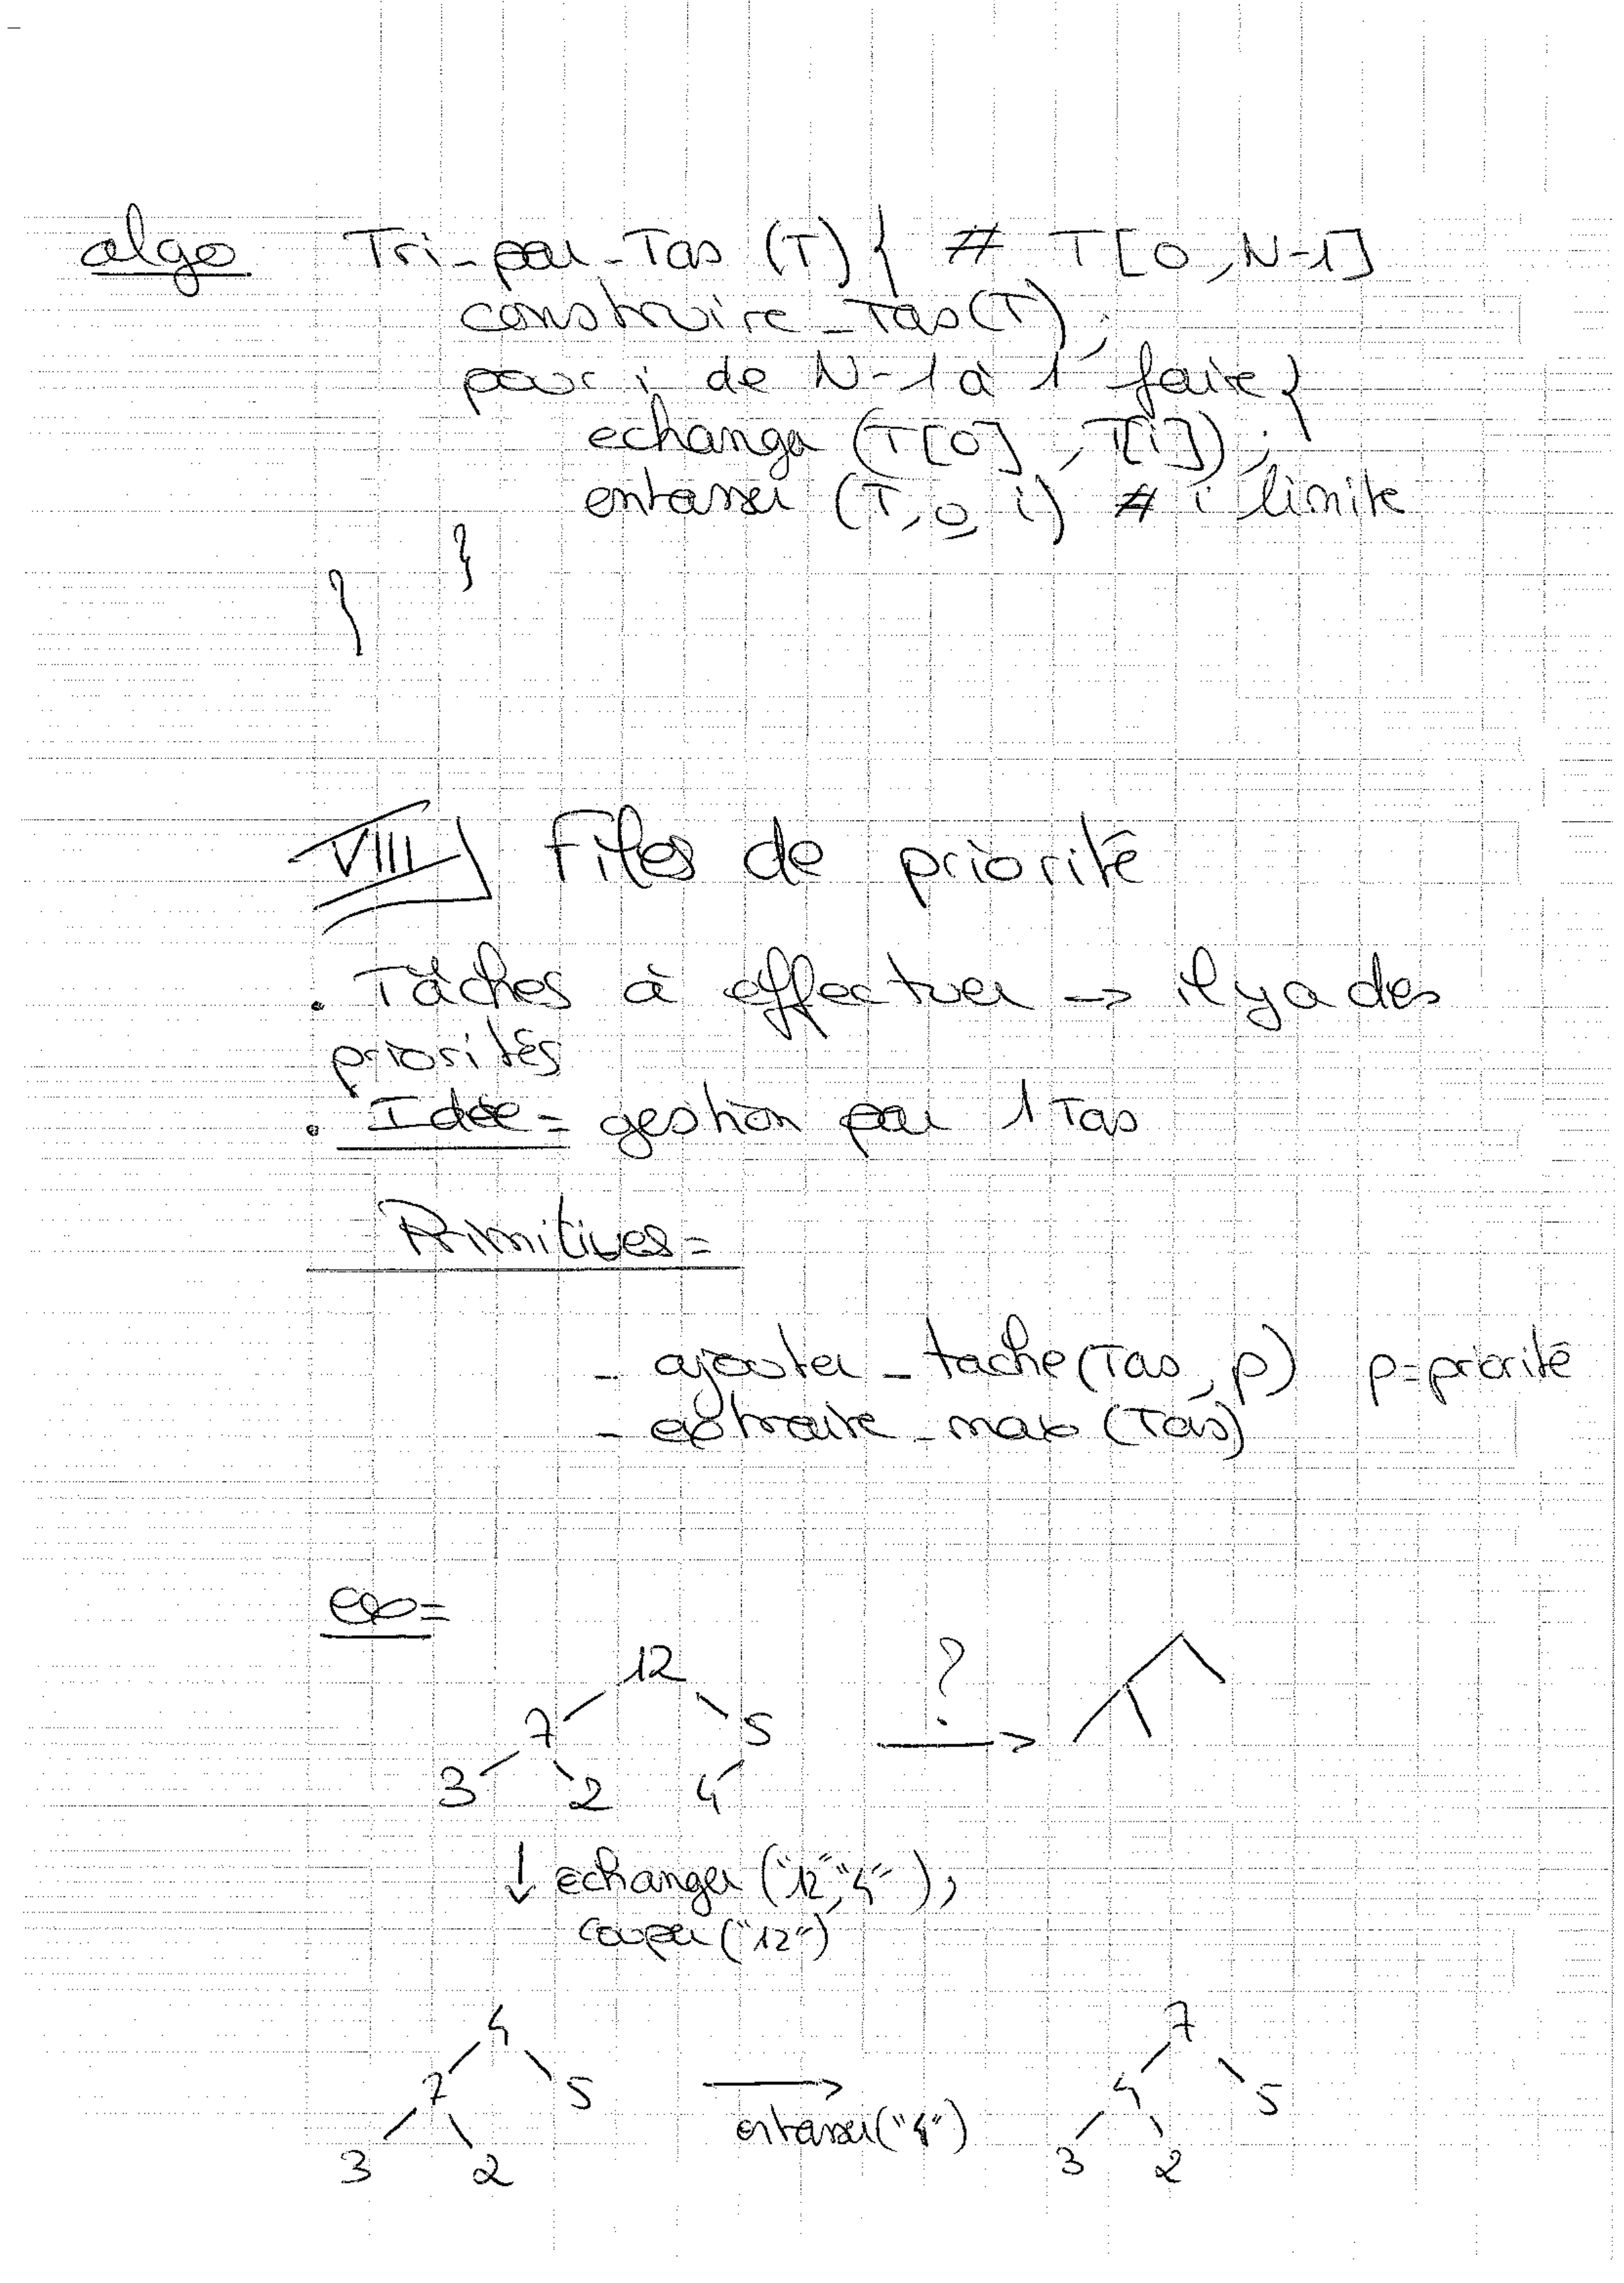 algo Tri_par_Tas (T) { # T[0,N-1]
construire_Tas(T);
pour i de N-1 à 1 faire {
echanger (T[0], T[i]);
entasser (T, 0, i) # i limite
}
}
VIII Files de priorité
. Tâches à effectuer -> il y a des
priorités
. Idée = gestion par 1 Tas
Primitives =
- ajouter_tache(Tas, p) p=priorité
- extraire_max (Tas)
ex =
12 ?
7 5
3 2 4
↓ echanger ("12","4");
couper ("12")
4 7
7 5 4 5
entasser("4")
3 2 3 2